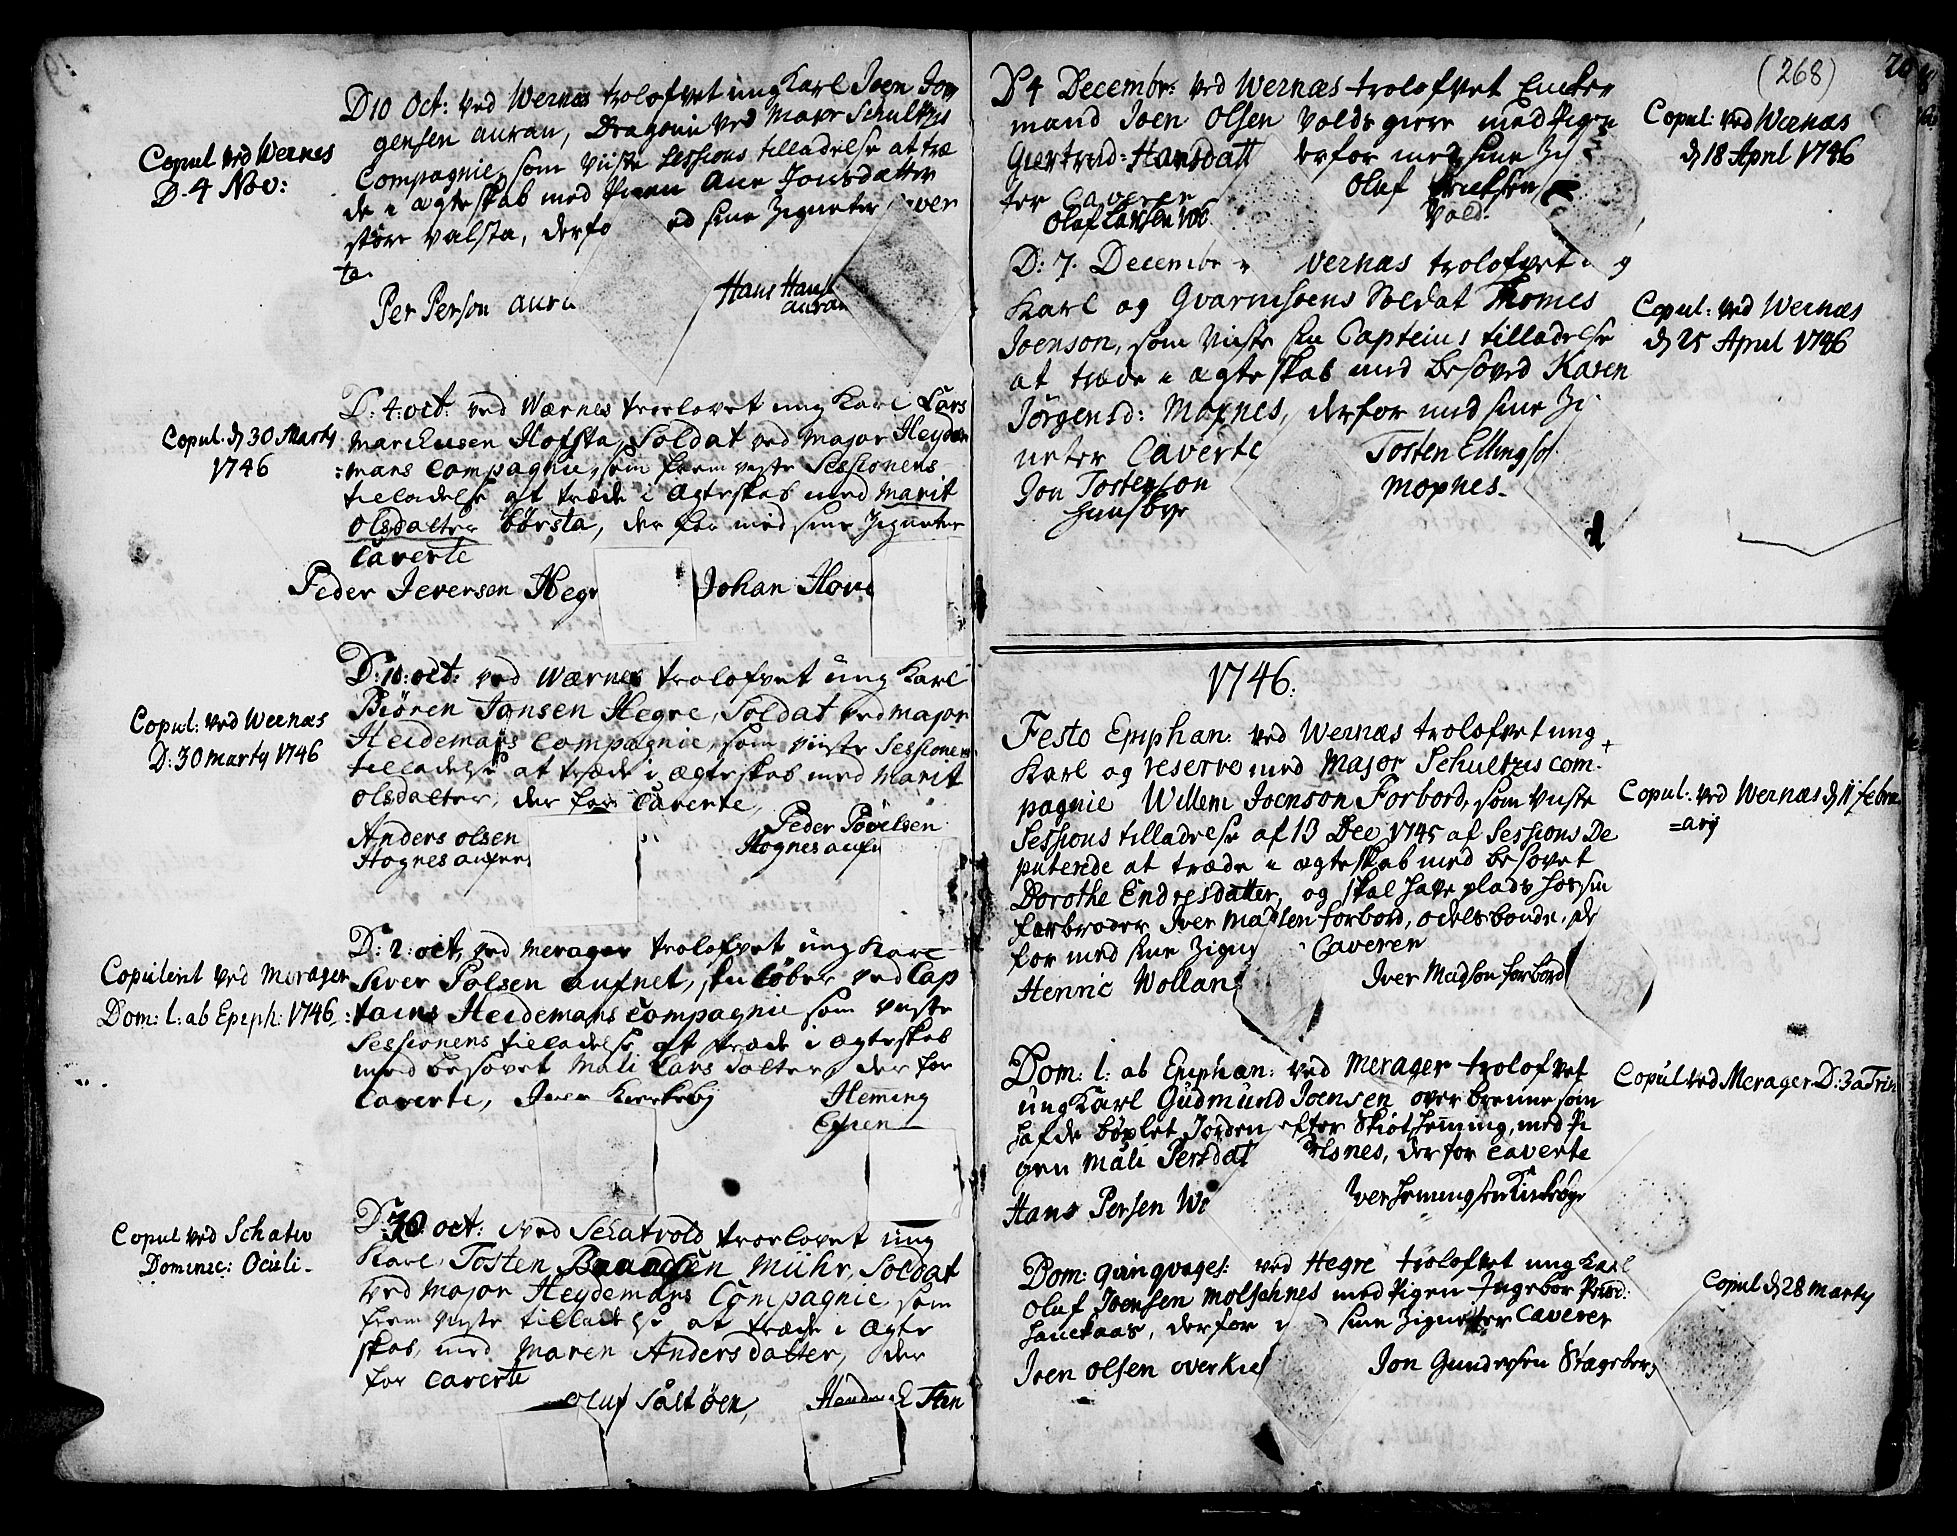 Copul ved Wernes
D. 4 Nov:
D 10 Oct: ved Wernes trolofvet ung Karl Joen Jör
gensen auran, Dragoun ved Major Schultzis
Compagnie, som viiste Sessions tilladelse at træ
de i ægteskab med Pigen Ane Jonsdatter
støre valsta, derfo ed sine Zigneter Caver
te.
Per Person aura
Hans Hans
auran
Copul. d 30 Marty
1746
D: 4: oct: ved Wærnes troelovet ung Karl Lars
Marchusen Hofsta, Soldat ved Major Heyde
:mans Compagnie, som frem viste Sessionens
tilladelse at træde i Ægteskab med Marit
Olsdatter børsta, der for med sine Zigneter
Caverte
Peder Ieversen Hegr
Johan Hove
Copul: ved Wernæs
D: 30 marty 1746
D: 10: oct: ved Wærnes trolofvet ung Karl
Biören Jonsen Hegre, Soldat ved major
Heidemans Compagnie, som viiste Sessionens
tilladelse at træde i ægteskab med Marit
Olsdatter, der for Caverte,
Anders olsen
Hognes aufne
Peder Povelsen
Hognes aufn
Copulent ved Merager
Dom: 1: ab Epiph: 1746
D: 2: oct, ved merager trolofvet ung Karl
Siver Polsen aufnet, skiløber ved Cap
:tains Heidemans Compagnie som viste
Sessionens tilladelse at træde i Ægteskab
med besovet Mali Lars datter, der for
Caverte, Iver Kirkeby
Hemming
Efnen
Copul ved Schatv
Dominic: Oculi
D: 30 oct: ved Schatvold troelovet ung
Karl Tosten Baardsen Mühr, Soldat
ved Major Heydemans Compagnie, som
frem viste tilladelse at træde i Ægte
skab, med Maren Anders datter, der
for Caverte
Oluf Saltöen,
Sten
(268)
D 4 Decembr: ved Wernæs trolofvet Encke
mand Joen Olsen Volds giere med Pigen
Giertrud Hansdatt derfor med sine Zi
ter Caveren
Olaf Larsen
Oluf Ericksen
Vold.
Copul: ved Wernæs
d 18 April 1746
D: 7. Decembe Vernæs trolofvet ung
Karl og Gvarnisoens Soldat Thomes
Joenson, som viiste sin Capteins tilladelse
at træde i ægteskab med besoved Karen
Jörgensd: Moxnes, derfor med sine Zi
neter Caverte
Jon Tostenson
Tosten Ellingso
moxnes.
Copul: ved Wernæs
d 25 April 1746
1746.
Festo Epiphan: ved Wernæs trolofvet ung
Karl og reserve med Major Schultzis com-
pagnie Willem Joenson Forbord, som viiste
Sessions tilladelse af 13 Dec 1745 af Sessions De
puterede at træde i ægteskab med besovet
Dorothe Endresdatter, og skal have plads hos sin
farbroder Iver Madsen forbord, odelsbonde, der
for med sine Zign Caveren
Henric Wollan
Iver Madson forbord
Copul: ved Wernæs d 11 febru
=arij
Dom: 1: ab Epiphan: ved Merager trolofvet
ung Karl Gudmund Joensen overbrenne som
hafde böxlet Jorden efter Skiöt henning, med Pi
gen Mali Persdat elsnes, derfor Caverte
Hans Persen We
Iver hemingsen Kirkebye
Copul ved Merager D: 3 a Trin
Dom: qvinqvages: ved Hegre trolofvet ung Karl
Oluf Joensen Molschnes med Pigen Ingebor
hanekaas, derfor sine Zigneter Caverer
Joen Olsen overkie
Jon Gundersen Stageberg
Copul d 28 marty